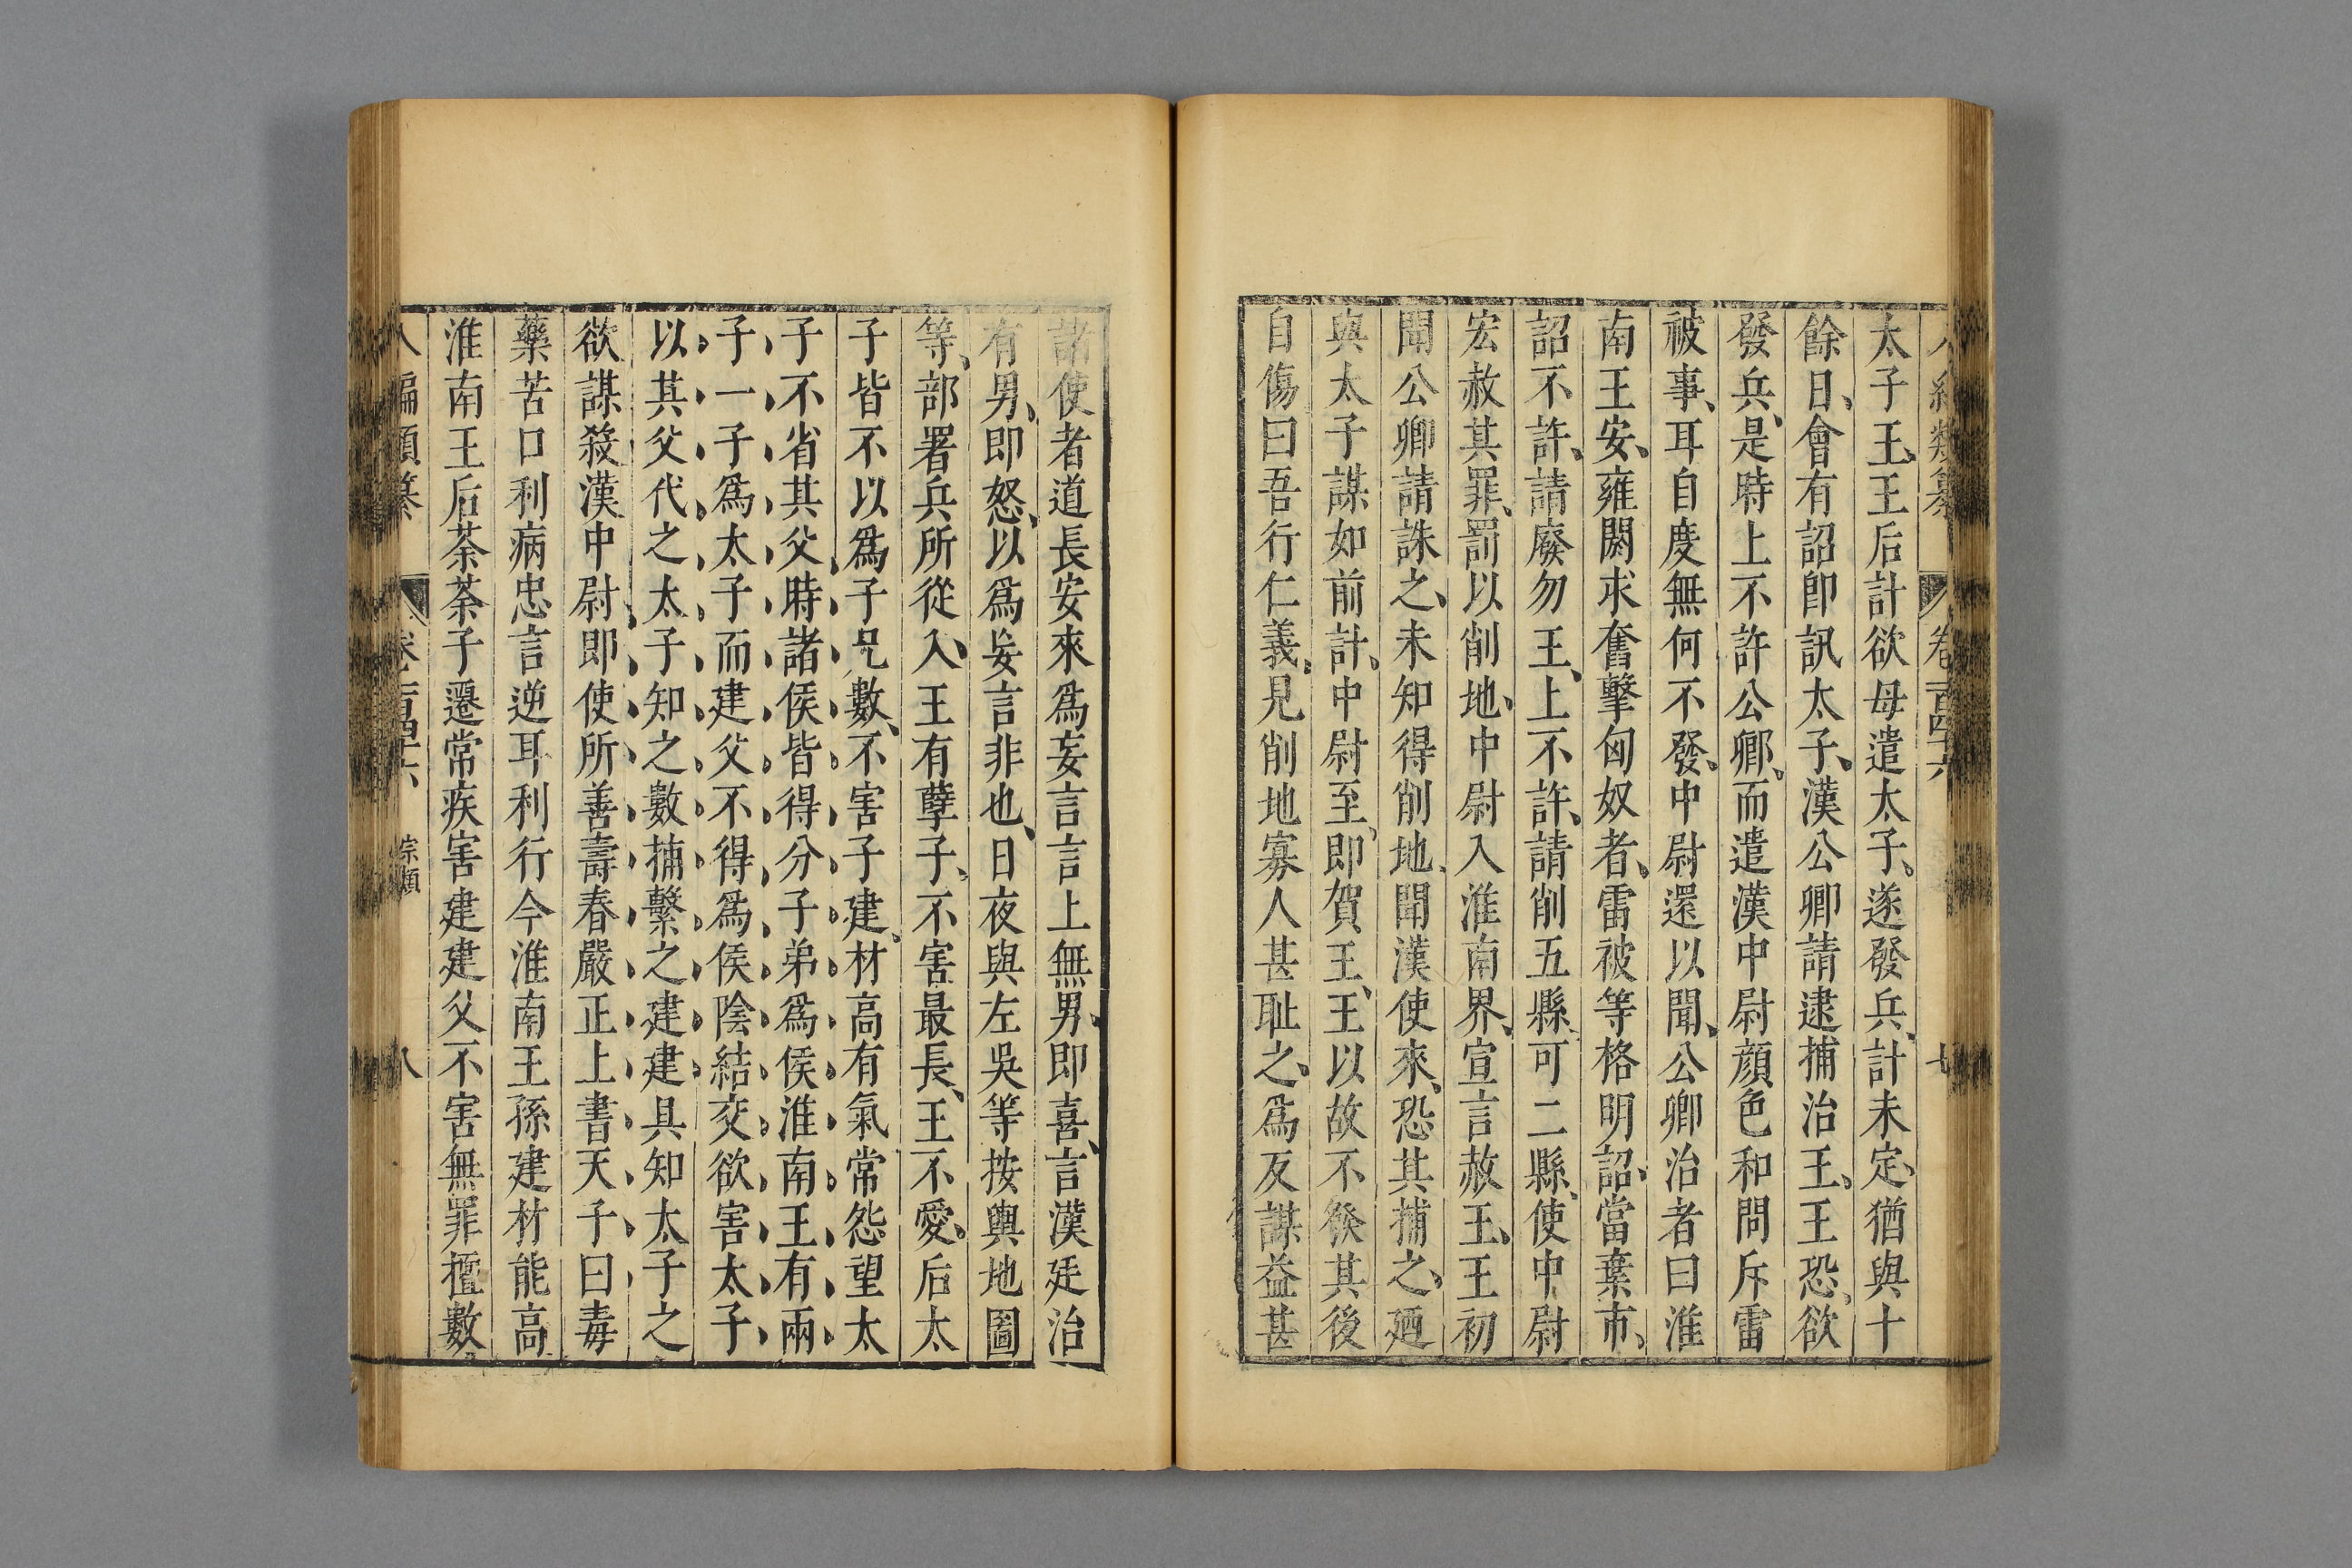 八編類纂 卷一百四十六 七
太子王、王后計欲毋遣太子、遂發兵、計未定、猶與十
餘日、會有詔卽訊太子、漢公卿請逮捕治王、王恐、欲
發兵、是時上不許公卿、而遣漢中尉顏色和問斥雷
被事、耳自度無何不發、中尉還以聞、公卿治者曰淮
南王安、雍閼求奮擊匈奴者、雷被等格明詔、當棄市、
詔不許、請廢勿王、上不許、請削五縣、可二縣、使中尉
宏赦其罪、罰以削地、中尉入淮南界、宣言赦王、王初
聞公卿請誅之、未知得削地、聞漢使來、恐其捕之、廼
與太子謀如前計、中尉至、即賀王、王以故不發其後
自傷曰吾行仁義、見削地寡人甚耻之、爲反謀益甚
諸使者道長安來爲妄言言上無男、即喜、言漢廷治
有男、即怒、以爲妄言非也、日夜與左吳等按輿地圖
等、部署兵所從入、王有孽子、不害最長、王不愛、后太
子皆不以爲子兄數、不害子建、材高有氣常怨望太
子不省其父、時諸侯皆得分子弟爲侯淮南王有兩
子一子爲太子而建父不得爲侯陰結交欲害太子
以其父代之太子知之數捕繫之建建具知太子之
欲謀殺漢中尉即使所善壽春嚴正上書天子曰毒
藥苦口利病忠言逆耳利行今淮南王孫建材能高
淮南王后荼荼子遷常疾害建建父不害無罪擅數
八編類纂 卷一百四十六 宗類 八